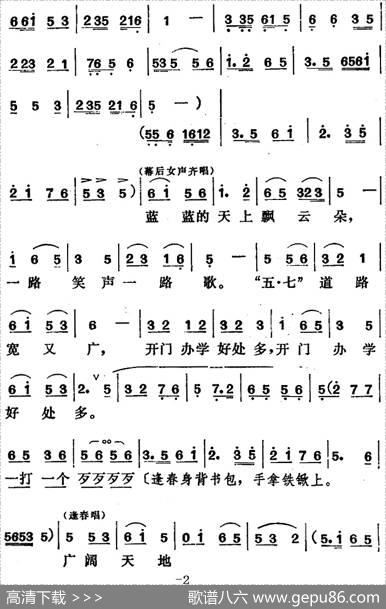 6 6 i 5 | 2 3 5 2 1 6 | 1 — | 3 3 5 6 1 5 | 6 6 3 5 |
2 2 3 2 1 | 7 6 5 6 | 5 3 5 5 6 | i. 2 6 5 | 3. 5 6 5 6 i |
5 5 3 | 2 3 5 2 1 6 | 5 — )
(5 5 6 1 6 1 2 | 3. 5 6 i | 2. 3 5 |
(幕后女声齐唱)
2 i 7 6 | 5 3 5 ) | 6 i 5 6 | i. 2 | 6 5 3 2 3 | 5 —
蓝 蓝的天上飘云朵,
i 6 5 | 3 5 | 2 3 1 6 | 5 — | 5 5 6 | 3 2 1
一路 笑声一路 歌。 “五·七”道路
6 i 5 3 | 6 — | 3 2 1 2 | 3 2 3 | i 6 5 | 3 5
宽又广, 开门办学好处多,开门办学
6 i 5 3 | 2. 5 | 3 2 7 6 | 5 7. 2 | 6 5 5 6 | 5 (2 7 7
好处多。
6 5 3 6 | 5 6 5 6 | 3. 5 6 i | 2. 3 5 | 2 1 7 6 | 5. 6
一打一个歹歹歹歹〔逢春身背书包,手拿铁锹上。
(逢春唱)
5 6 5 3 5 ) | 5 5 3 | 6 i 5 | 0 i 6 5 | 5 3 2 | (5. i 6 5
广阔 天地
-2
高清下载 >>>
歌谱八六 www.gepu86.com